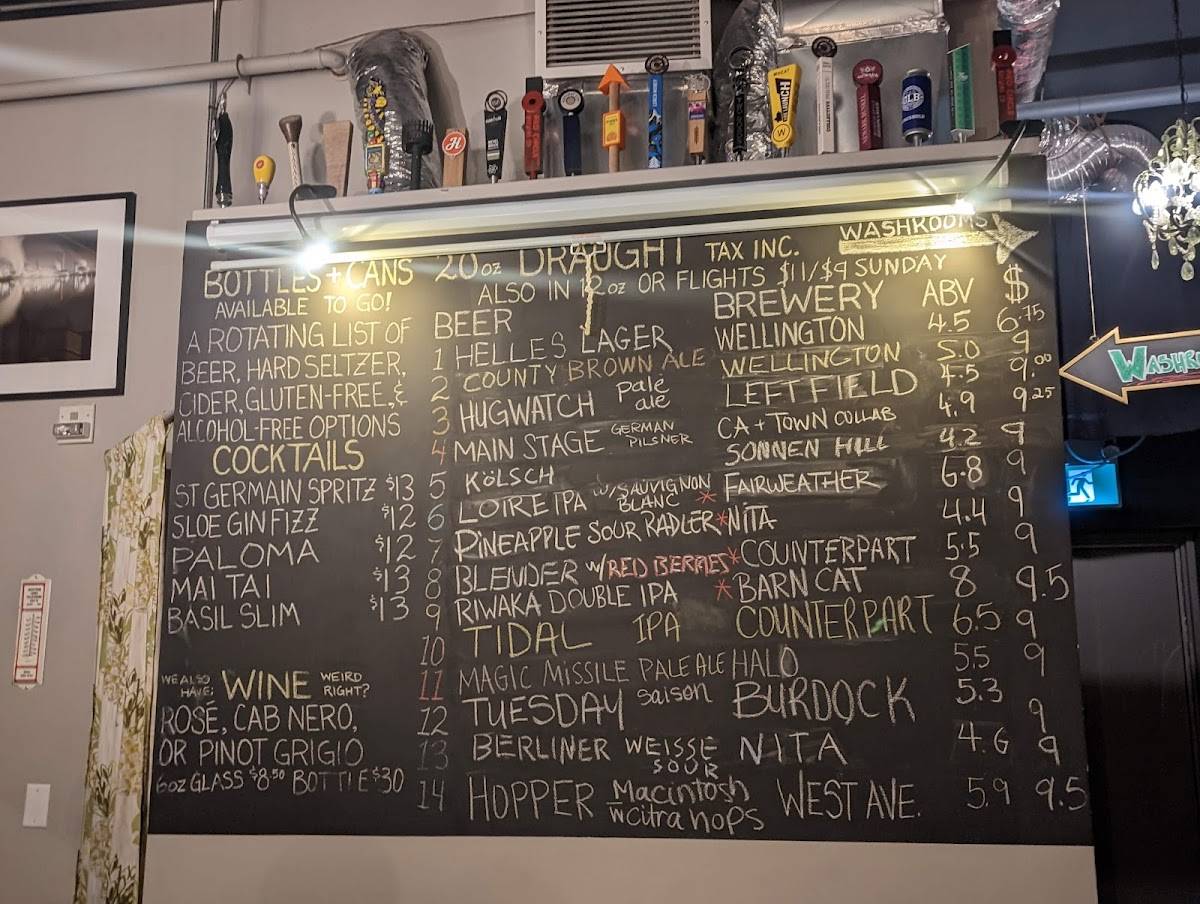 WASHROOMS
BOTTLES + CANS
AVAILABLE TO GO!
A ROTATING LIST OF
BEER, HARD SELTZER,
CIDER, GLUTEN-FREE, &
ALCOHOL-FREE OPTIONS
COCKTAILS
ST GERMAIN SPRITZ $13
SLOE GIN FIZZ $12
PALOMA $12
MAI TAI $13
BASIL SLIM $13
WE ALSO HAVE: WINE WEIRD RIGHT?
ROSÉ, CAB NERO,
OR PINOT GRIGIO
6oz GLASS $8.50 BOTTLE $30
20oz DRAUGHT TAX INC.
ALSO IN 12oz OR FLIGHTS $11/$9 SUNDAY
BEER BREWERY ABV $
1 HELLES LAGER WELLINGTON 4.5 6.75
2 COUNTY BROWN ALE WELLINGTON 5.0 9
3 HUGWATCH pale ale LEFT FIELD 4.5 9.00
4 MAIN STAGE GERMAN PILSNER CA + TOWN COLLAB 4.9 9.25
5 KÖLSCH SONNEN HILL 4.2 9
6 LOIRE IPA W/SAUVIGNON BLANC * FAIRWEATHER 6.8 9
7 PINEAPPLE SOUR RADLER * NITA 4.4 9
8 BLENDER W/RED BERRIES * COUNTERPART 5.5 9
9 RIWAKA DOUBLE IPA * BARN CAT 8 9.5
10 TIDAL IPA COUNTERPART 6.5 9
11 MAGIC MISSILE PALE ALE HALO 5.5 9
12 TUESDAY saison BURDOCK 5.3 9
13 BERLINER WEISSE SOUR NITA 4.6 9
14 HOPPER Macintosh w citra hops WEST AVE. 5.9 9.5
WASHRO